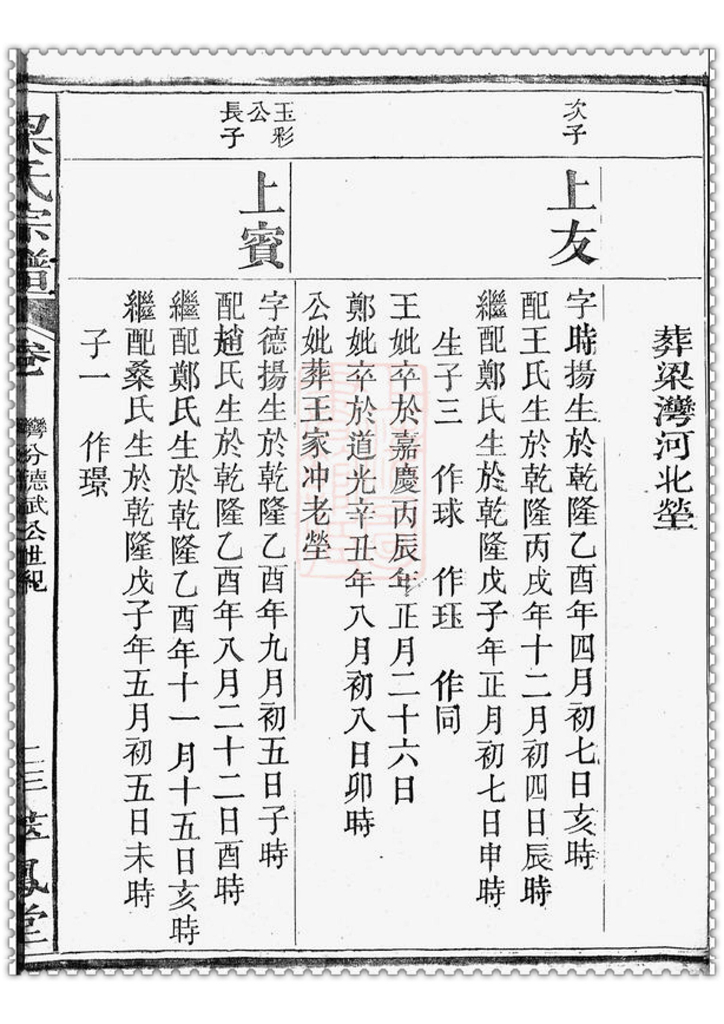 葬梁灣河北塋
次子
上友
字時揚生於乾隆乙酉年四月初七日亥時
配王氏生於乾隆丙戌年十二月初四日辰時
繼配鄭氏生於乾隆戊子年正月初七日申時
生子三 作球 作珏 作同
王妣卒於嘉慶丙辰年正月二十六日
鄭妣卒於道光辛丑年八月初八日卯時
公妣葬王家冲老塋
玉彩
公
長子
上賓
字德揚生於乾隆乙酉年九月初五日子時
配趙氏生於乾隆乙酉年八月二十二日酉時
繼配鄭氏生於乾隆乙酉年十一月十五日亥時
繼配桑氏生於乾隆戊子年五月初五日未時
子一 作璟
梁氏宗譜
卷一
灣分德武公世紀
鳳堂